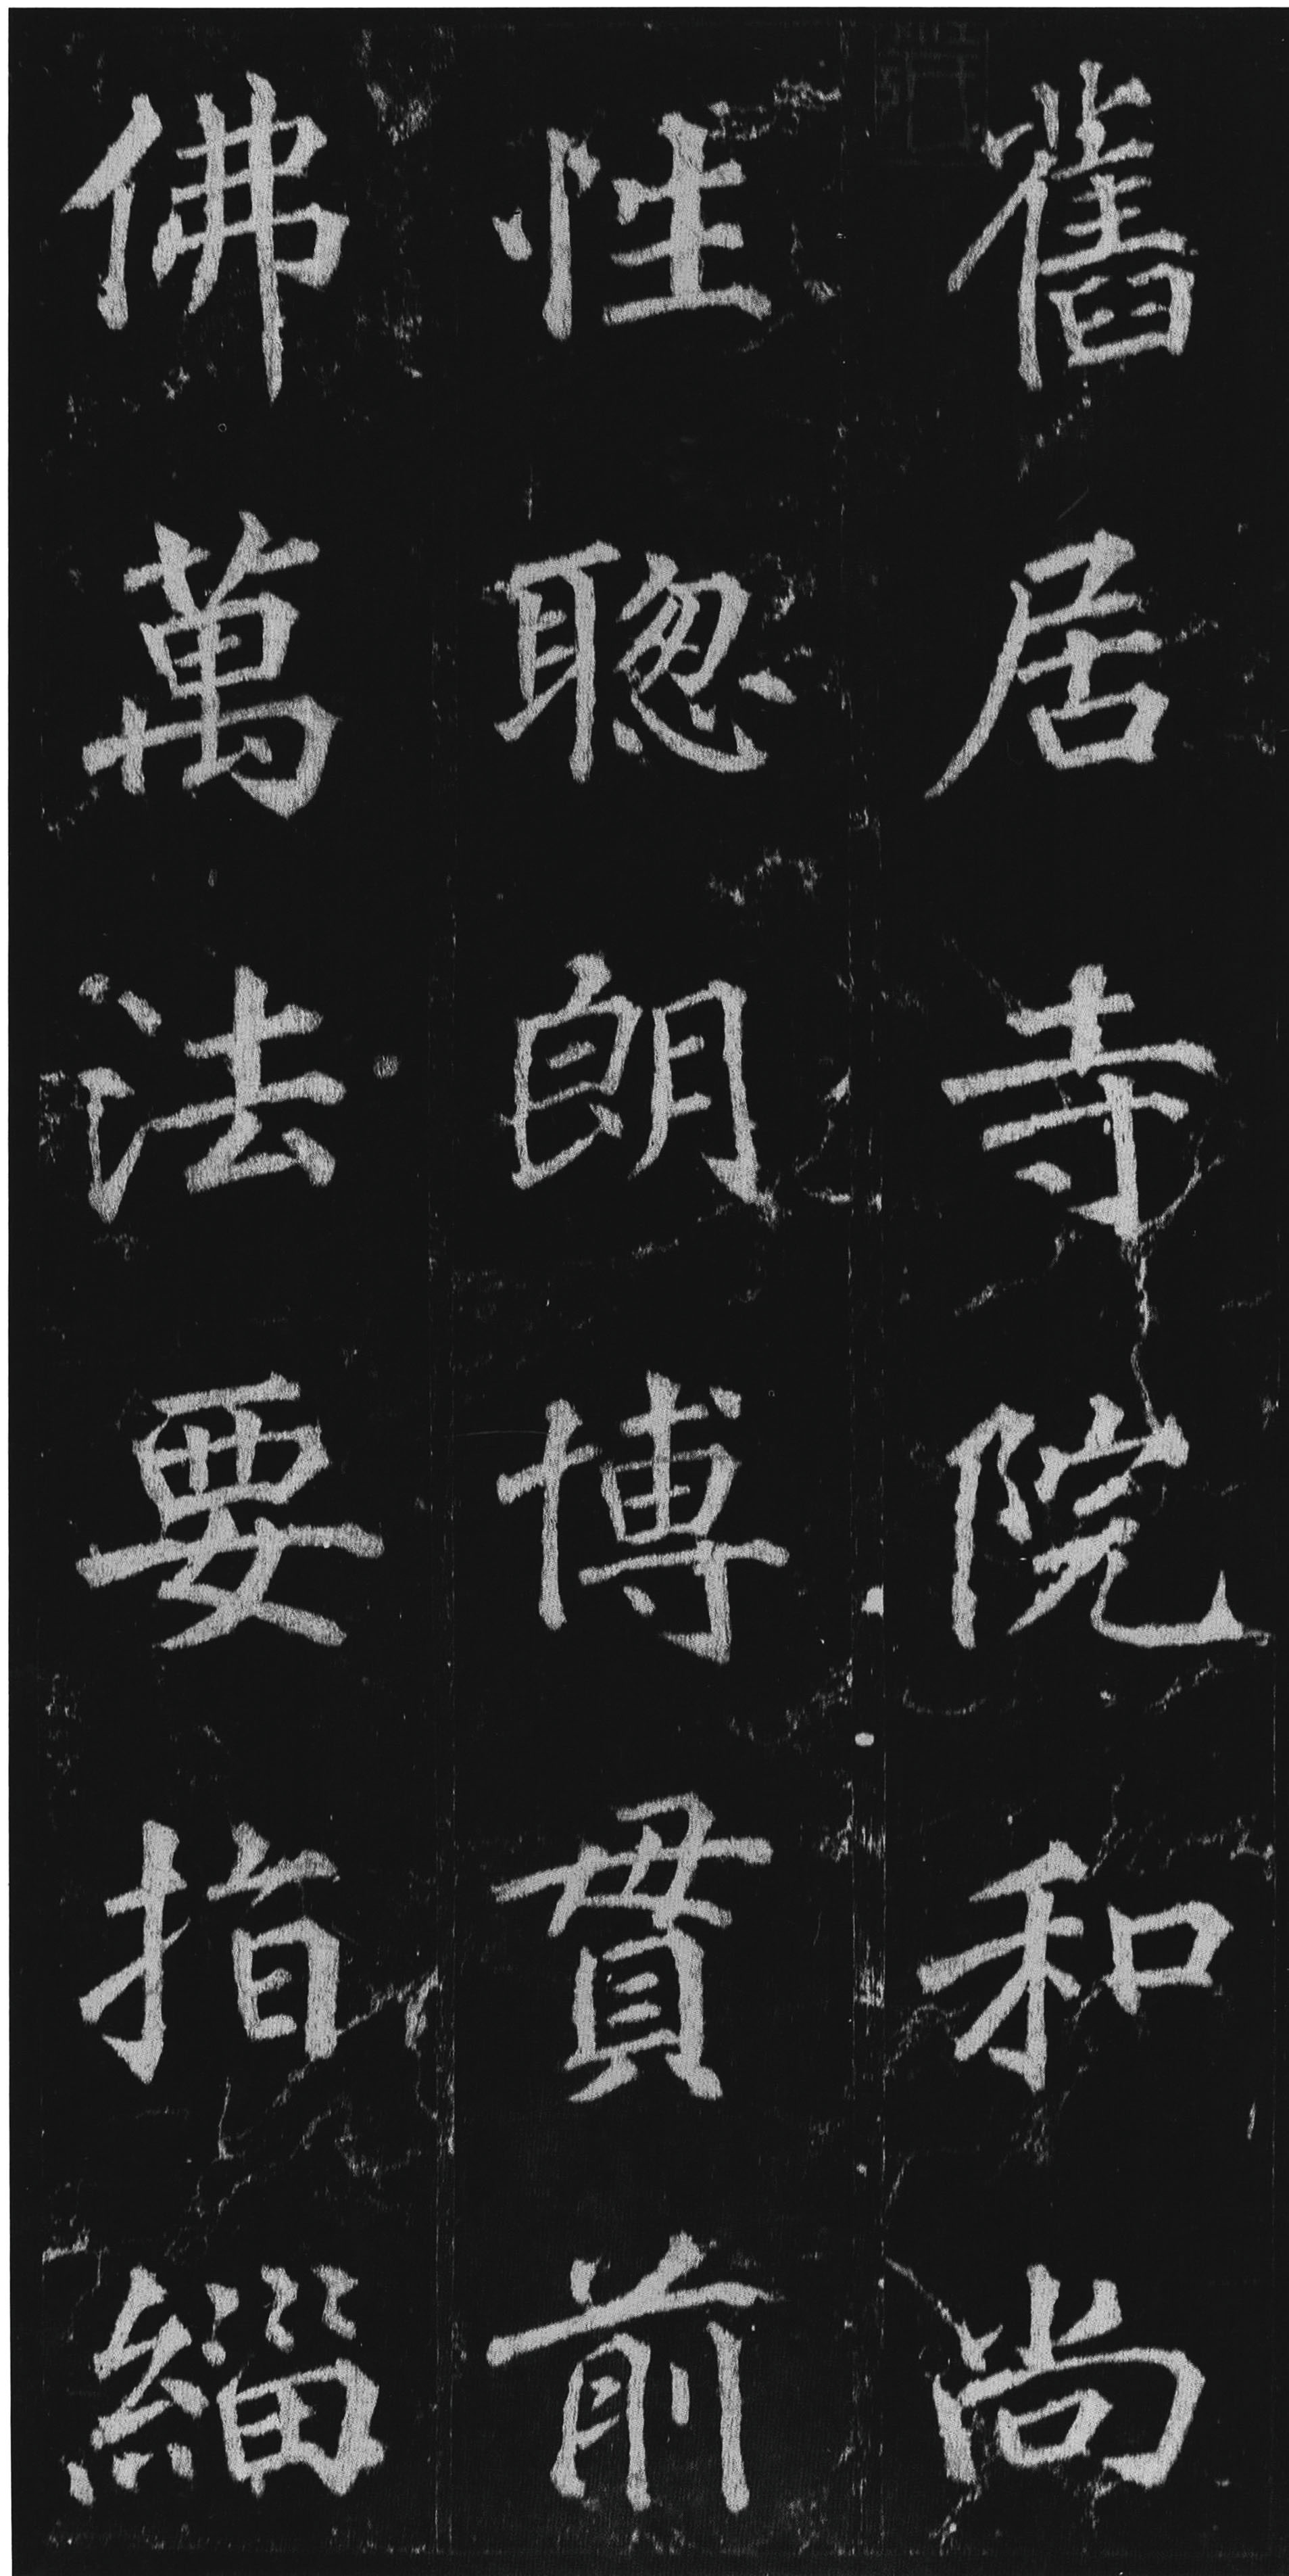 舊居寺院和尚
性聡朗博貫前
佛萬法要指緇